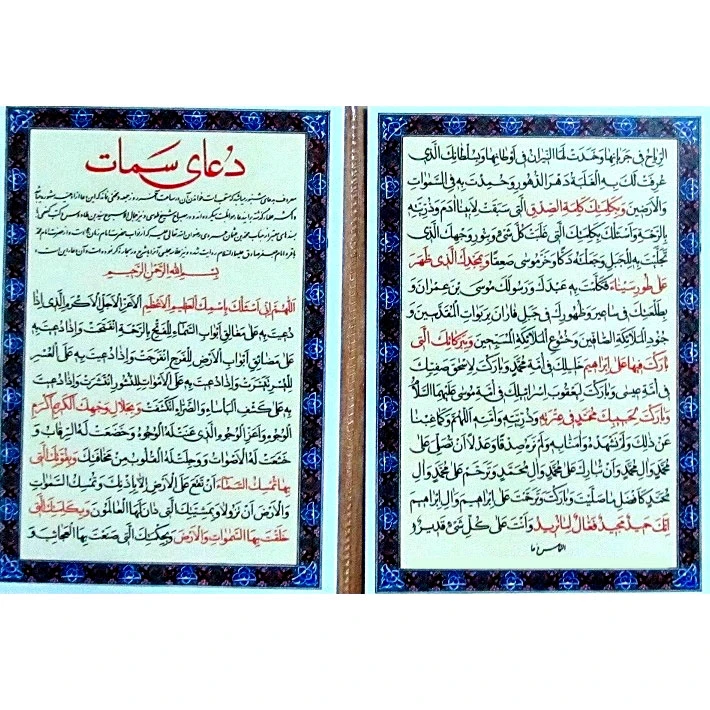 دُعای سَمات
بِسْمِ اللّٰهِ الرَّحْمٰنِ الرَّحیمِ
اَللّٰهُمَّ اِنّی اَسْئَلُكَ بِاسْمِكَ الْعَظیمِ الْاَعْظَمِ الْاَعَزِّ الْاَجَلِّ الْاَكْرَمِ الَّذی اِذا
دُعیتَ بِهِ عَلٰی مَغالِقِ اَبْوابِ السَّماءِ لِلْفَتْحِ بِالرَّحْمَةِ انْفَتَحَتْ وَاِذا دُعیتَ بِهِ
عَلٰی مَضائِقِ اَبْوابِ الْاَرْضِ لِلْفَرَجِ انْفَرَجَتْ وَاِذا دُعیتَ بِهِ عَلَی الْعُسْرِ
لِلْیُسْرِ تَیَسَّرَتْ وَاِذا دُعیتَ بِهِ عَلَی الْاَمْواتِ لِلنُّشُورِ انْتَشَرَتْ وَاِذا دُعیتَ
بِهِ عَلٰی كَشْفِ الْبَأْساءِ وَالضَّرّاءِ انْكَشَفَتْ وَبِجَلالِ وَجْهِكَ الْكَریمِ اَكْرَمِ
الْوُجُوهِ وَاَعَزِّ الْوُجُوهِ الَّذی عَنَتْ لَهُ الْوُجُوهُ وَخَضَعَتْ لَهُ الرِّقابُ وَ
خَشَعَتْ لَهُ الْاَصْواتُ وَوَجِلَتْ لَهُ الْقُلُوبُ مِنْ مَخافَتِكَ وَبِقُوَّتِكَ الَّتی
بِها تُمْسِكُ السَّماءَ اَنْ تَقَعَ عَلَی الْاَرْضِ اِلّا بِاِذْنِكَ وَتُمْسِكُ السَّمٰواتِ
وَالْاَرْضَ اَنْ تَزُولا وَبِمَشِیَّتِكَ الَّتی دانَ لَهَا الْعالَمُونَ وَبِكَلِمَتِكَ الَّتی
خَلَقْتَ بِهَا السَّمٰواتِ وَالْاَرْضَ وَبِحِكْمَتِكَ الَّتی صَنَعْتَ بِهَا الْعَجائِبَ وَ
الرِّیاحُ فی جَرَیانِها وَخَمَدَتْ لَهَا النّیرانُ فی اَوْطانِها وَبِسُلْطانِكَ الَّذی
عُرِفَتْ لَكَ بِهِ الْغَلَبَةُ دَهْرَ الدُّهُورِ وَحُمِدْتَ بِهِ فِی السَّمٰواتِ
وَالْاَرَضینَ وَبِكَلِمَتِكَ كَلِمَةِ الصِّدْقِ الَّتی سَبَقَتْ لِاَبینا اٰدَمَ وَذُرِّیَّتِهِ
بِالرَّحْمَةِ وَاَسْئَلُكَ بِكَلِمَتِكَ الَّتی غَلَبَتْ كُلَّ شَیْءٍ وَبِنُورِ وَجْهِكَ الَّذی
تَجَلَّیْتَ بِهِ لِلْجَبَلِ فَجَعَلْتَهُ دَكًّا وَخَرَّ مُوسٰی صَعِقًا وَبِمَجْدِكَ الَّذی ظَهَرَ
عَلٰی طُورِ سَیْناءَ فَكَلَّمْتَ بِهِ عَبْدَكَ وَرَسُولَكَ مُوسَی بْنَ عِمْرانَ وَ
بِطَلْعَتِكَ فی ساعیرَ وَظُهُورِكَ فی جَبَلِ فارانَ بِرَبَواتِ الْمُقَدَّسینَ وَ
جُنُودِ الْمَلائِكَةِ الصّافّینَ وَخُشُوعِ الْمَلائِكَةِ الْمُسَبِّحینَ وَبِبَرَكاتِكَ الَّتی
بارَكْتَ فیها عَلٰی اِبْراهیمَ خَلیلِكَ فی اُمَّةِ مُحَمَّدٍ وَبارَكْتَ لِاِسْحٰقَ صَفِیِّكَ
فی اُمَّةِ عیسٰی وَبارَكْتَ لِیَعْقُوبَ اِسْرائیلِكَ فی اُمَّةِ مُوسٰی عَلَیْهِمَا السَّلامُ
وَبارَكْتَ لِحَبیبِكَ مُحَمَّدٍ فی عِتْرَتِهِ وَذُرِّیَّتِهِ وَاُمَّتِهِ اَللّٰهُمَّ وَكَما غِبْنا
عَنْ ذٰلِكَ وَلَمْ نَشْهَدْهُ وَاٰمَنّا بِهِ وَلَمْ نَرَهُ صِدْقًا وَعَدْلًا اَنْ تُصَلِّیَ عَلٰی
مُحَمَّدٍ وَاٰلِ مُحَمَّدٍ وَاَنْ تُبارِكَ عَلٰی مُحَمَّدٍ وَاٰلِ مُحَمَّدٍ وَتَرَحَّمَ عَلٰی مُحَمَّدٍ وَاٰلِ
مُحَمَّدٍ كَاَفْضَلِ ما صَلَّیْتَ وَبارَكْتَ وَتَرَحَّمْتَ عَلٰی اِبْراهیمَ وَاٰلِ اِبْراهیمَ
اِنَّكَ حَمیدٌ مَجیدٌ فَعّالٌ لِما تُریدُ وَاَنْتَ عَلٰی كُلِّ شَیْءٍ قَدیرٌ
التماس دعا